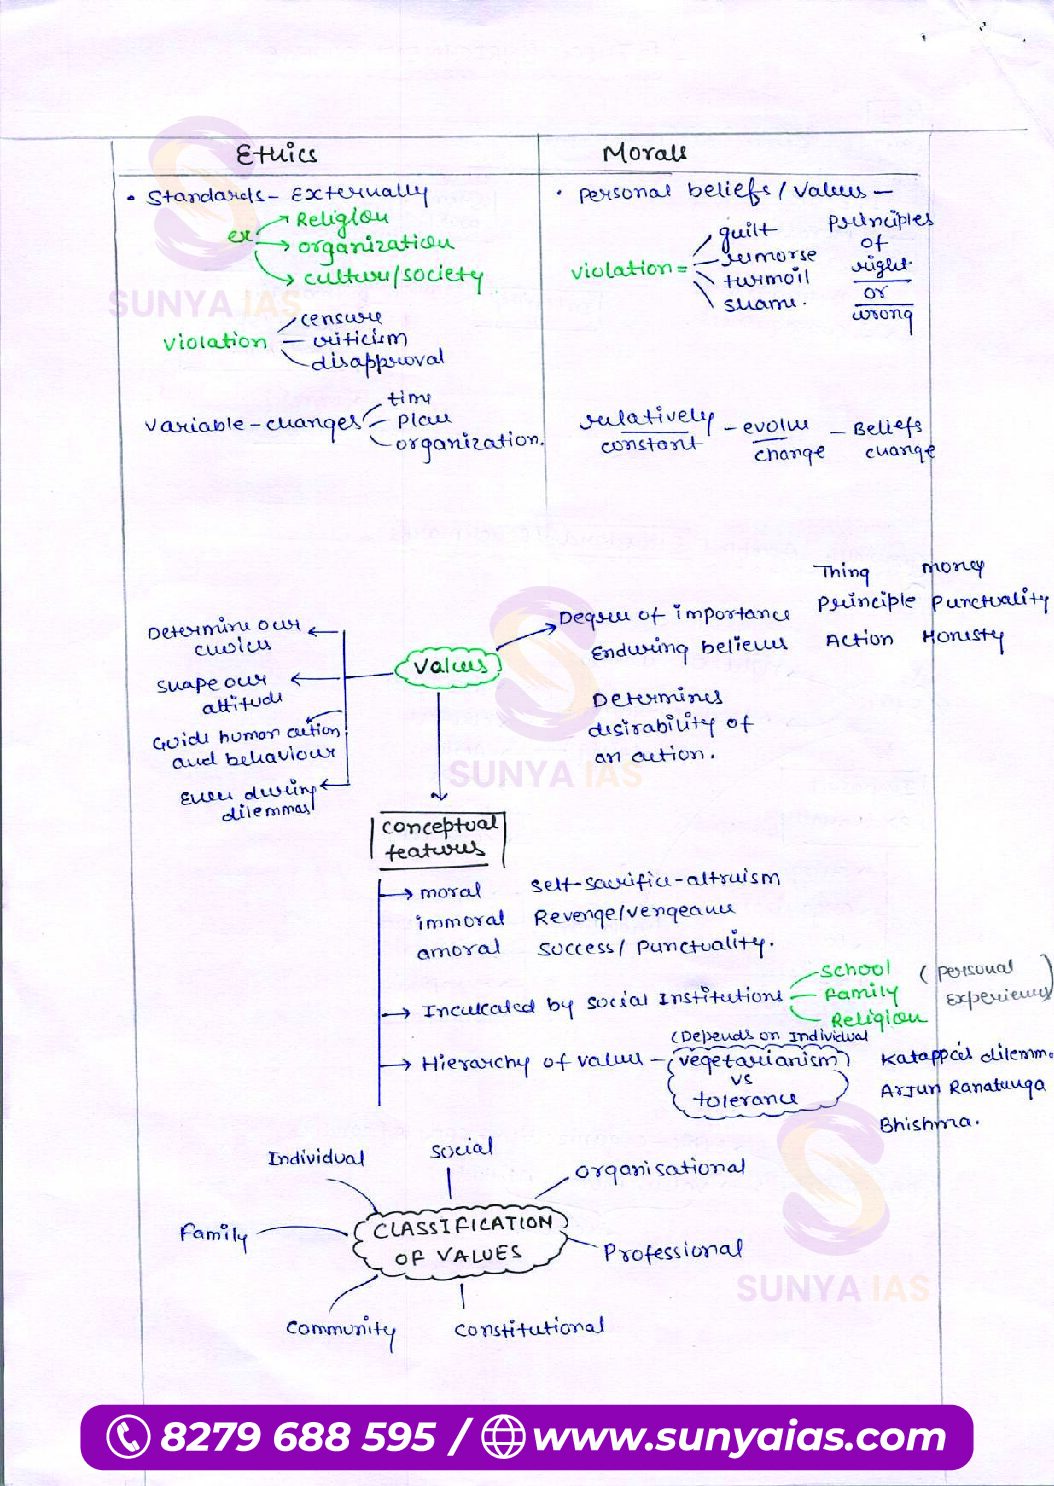 Ethics
Morals
• Standards - Externally
ex
Religion
organization
culture/society
Violation
censure
criticism
disapproval
Variable - changes
time
place
organization.
• Personal beliefs / Values -
Principles
of
right
or
wrong
Violation =
guilt
remorse
turmoil
shame.
relatively
constant
- evolve
change
- Beliefs
change
SUNYA IAS
Values
Determine our
choices
shape our
attitude
Guide human action
and behaviour
Even during
dilemmas
Degree of importance
Enduring believes
Thing money
Principle Punctuality
Action Honesty
Determines
desirability of
an action.
SUNYA IAS
conceptual
features
moral self-sacrifice-altruism
immoral Revenge/vengeance
amoral success/ punctuality.
Inculcated by social Institutions
School
Family
Religion
(Personal
Experiences)
Hierarchy of values -
(Depends on Individual
vegetarianism
vs
tolerance
Katappa's dilemma.
Arjun Ranatunga
Bhishma.
CLASSIFICATION
OF VALUES
Individual
social
organisational
Family
Professional
community
constitutional
SUNYA IAS
8279 688 595 / www.sunyaias.com